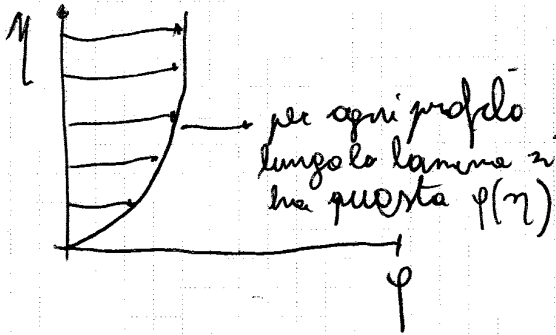 η
per ogni profilo
lungo la lamina si
ha questa φ(η)
φ